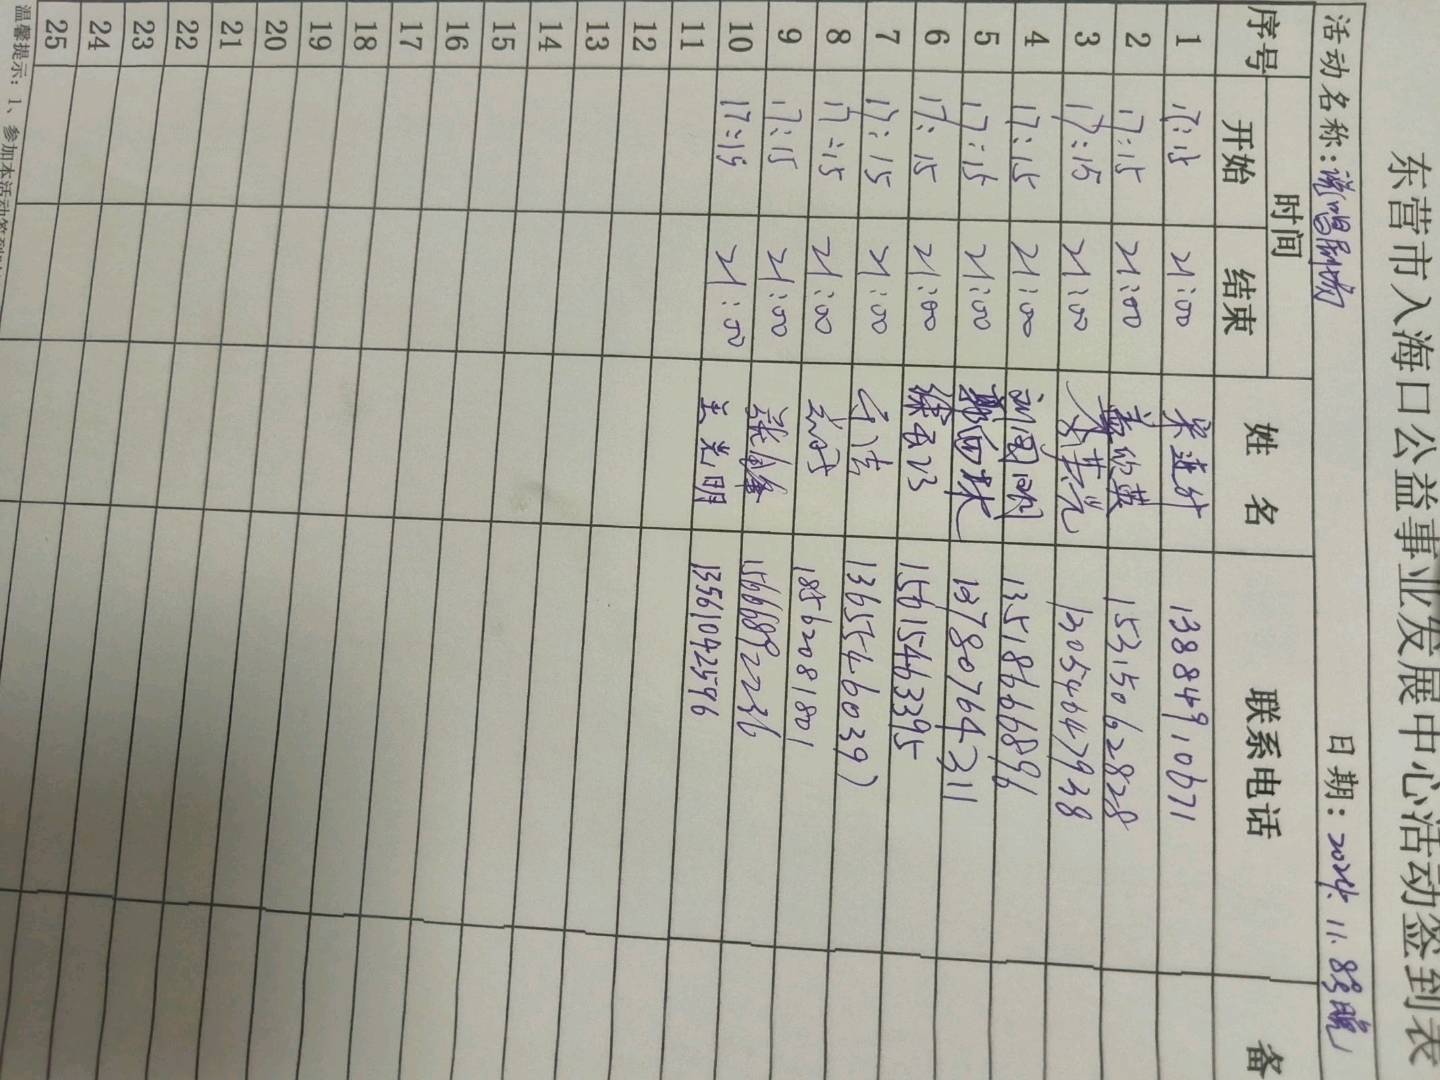 东营市入海口公益事业发展中心活动签到表
活动名称: 日期: 2024.11.8号晚
序号 时间 姓 名 联系电话 备
开始 结束
1 17:15 21:00 13884910671
2 17:15 21:00 15315062828
3 17:15 21:00 13054647938
4 17:15 21:00 刘国 13518666896
5 17:15 21:00 13780764311
6 17:15 21:00 徐 15615463395
7 17:15 21:00 
8 17:15 21:00 18562081801
9 17:15 21:00 张 15666892236
10 17:15 21:00 王光明 13561042596
11
12
13
14
15
16
17
18
19
20
21
22
23
24
25
温馨提示: 1、参加本活动签到